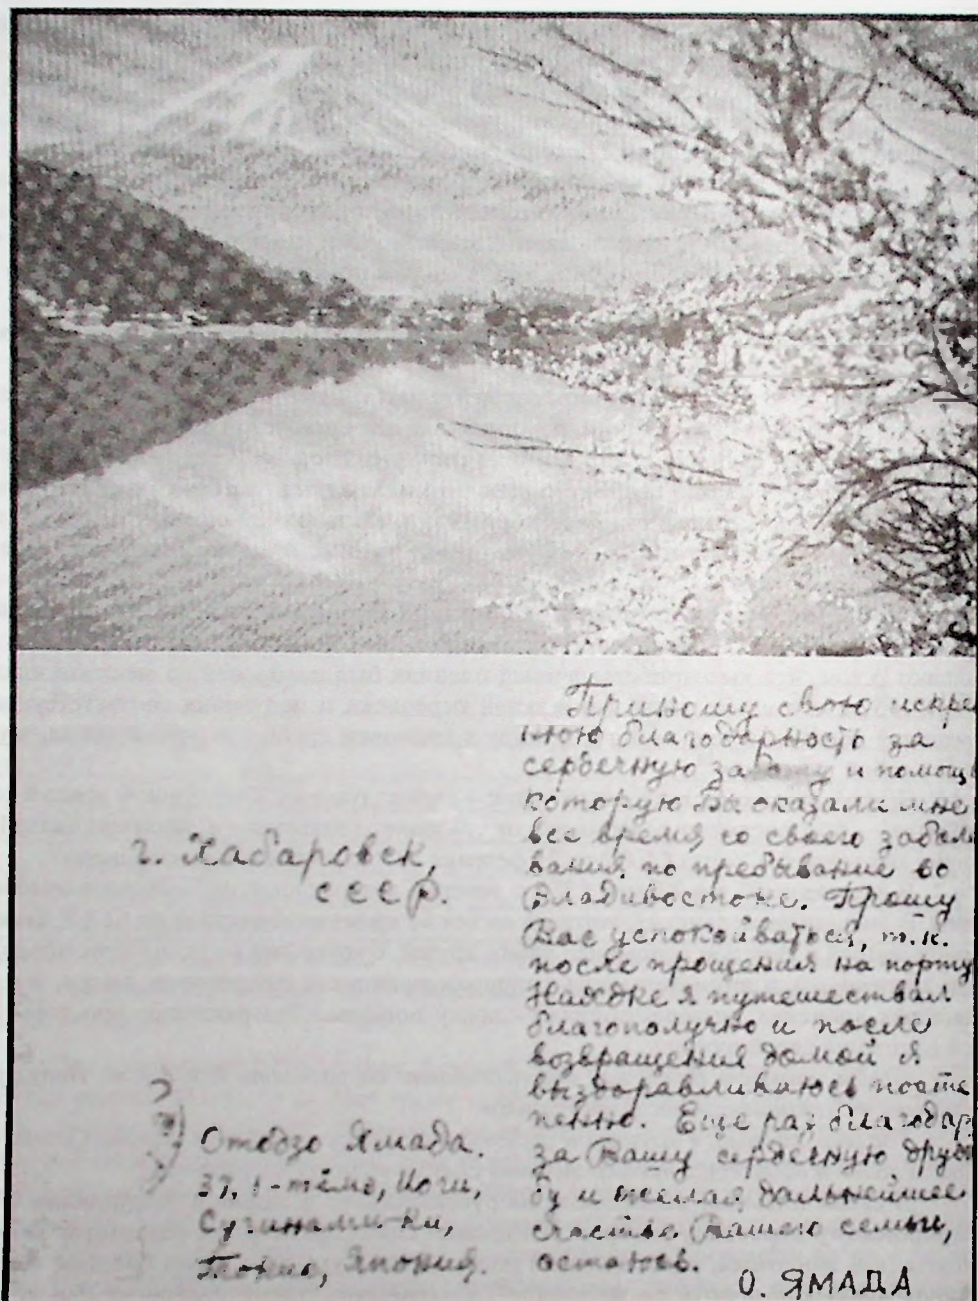 г. Хабаровск,
СССР.
Отодзо Ямада.
37, 1-тёмэ, Иоги,
Сугинами-ки,
Токио, Япония.
Приношу свою искре
нюю благодарность за
сердечную заботу и помощь
которую Вы оказали мне
все время со своего забол
вания по пребывание во
Владивостоке. Прошу
Вас успокойваться, т.к.
после прощения на порту
Находке я путешествал
благополучно и после
возвращения домой я
выздоравливаюсь посте
пенно. Еще раз благодар
за Вашу сердечную друж
бу и желая дальнейшее
счастье Вашею семьи,
остаюсь.
О. ЯМАДА